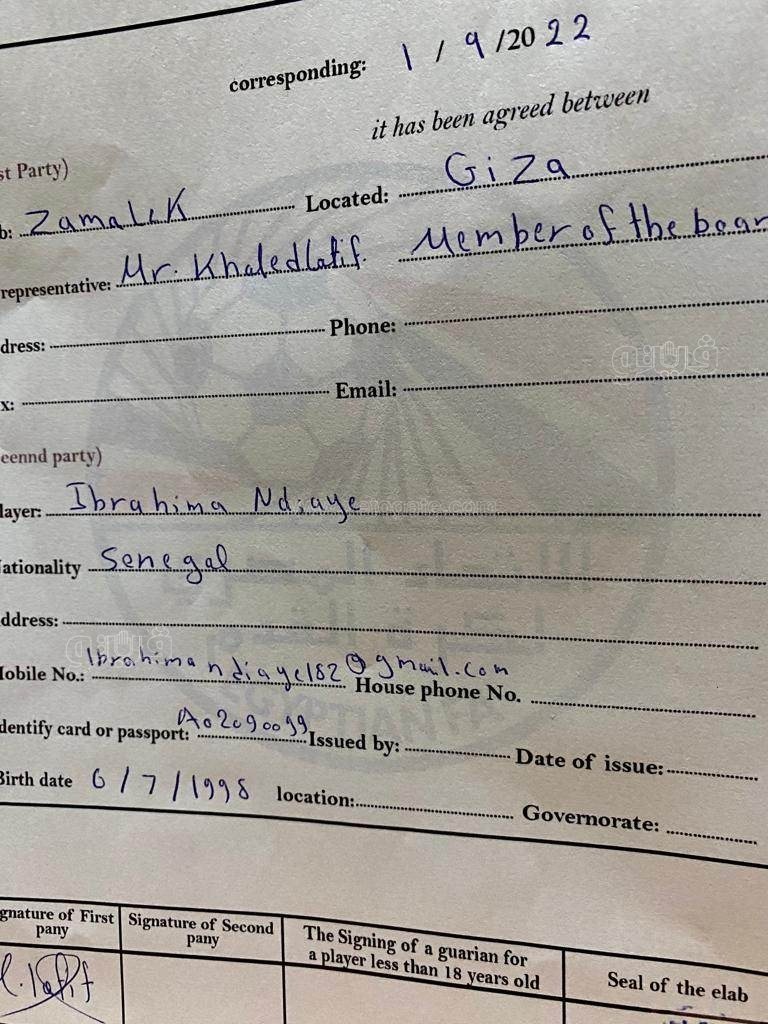 corresponding: 1 / 9 /20 22
it has been agreed between
st Party)
b: Zamalek Located: Giza
representative: Mr. Khaled latif. Member of the boar
dress: Phone:
x: Email:
eennd party)
layer: Ibrahima Ndiaye
ationality Senegal
ddress:
Mobile No.: Ibrahimandiaye182@gmail.com House phone No.
dentify card or passport: A02090099 Issued by: Date of issue:
Birth date 6/7/1998 location: Governorate:
gnature of First pany
Signature of Second pany
The Signing of a guarian for a player less than 18 years old
Seal of the elab